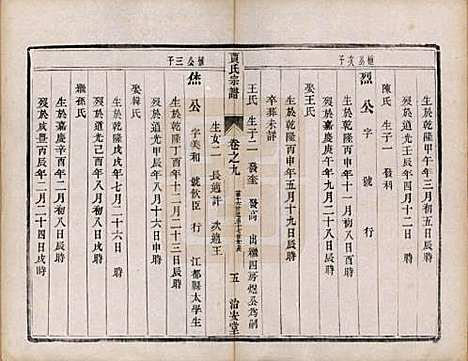 生於乾隆甲午年三月初五日辰時
歿於道光壬辰年二月二十四日 時
陳氏 生子二 發科
烈公 字 號 行
恒公次子
生於乾隆丙申年五月十九日辰時
歿於嘉慶庚午年十月初一日 時
娶王氏
卒葬未詳
王氏 生子二 發奎 發高 出繼四房煜公為嗣
賈氏宗譜
卷之九
五 治安堂
生女二 長適許 次適王
公 字美和 號欽臣 行 江都縣太學生
恒公三子
生於乾隆丁酉年十二月二十三日辰時
歿於道光己酉年八月十六日 時
娶韓氏
生於乾隆戊戌年七月二十六日 時
歿於嘉慶辛酉年二月初八日辰時
繼孫氏
生於乾隆戊戌年八月初八日辰時
歿於咸豐丙辰年二月二十四日 時